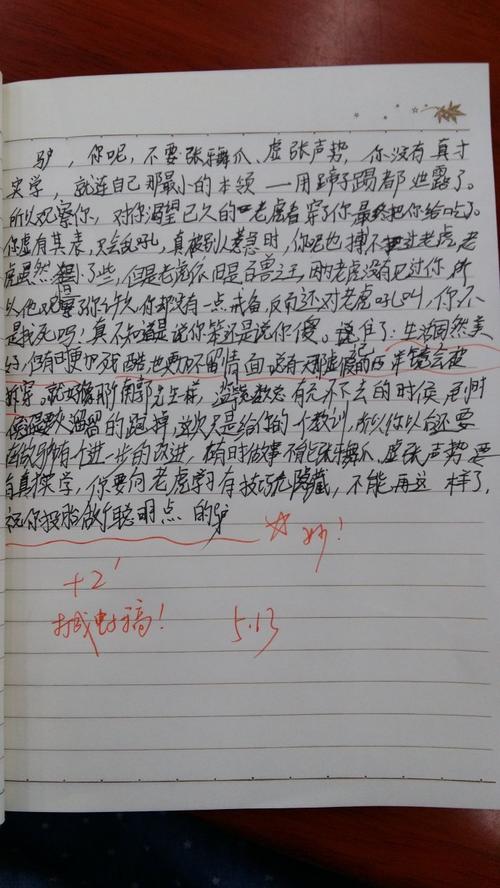 驴，你呢，不要张牙舞爪、虚张声势，你没有真才
实学，就连自己那最小的本领一用蹄子踢都泄露了。
所以观察你，对你渴望已久的老虎看穿了你最终把你给吃了。
你虚有其表，只会乱吼，真被别人惹急时，你呢也搏不过老虎，老
虎虽然小了些，但是老虎依旧是百兽之王，因为老虎没有见过你，所
以他观察了你许久，你却没有一点戒备，反而还对老虎吼叫，你不
是找死吗！真不知道是说你笨还是说你傻。记住了：生活固然美
好，但有时更加残酷，也更加不留情面，没有
就好像那南郭先生一样，有混不下去的时候，到时
的跑掉，这次只是给你的一个教训，所以你以后还要
有个进一步的改进，有时做事不能张牙舞爪、虚张声势，要
有真才实学，你要向老虎学习有技巧先隐藏，不能再这样了，
祝你投胎做个聪明点的驴
妙！
+2'
打成电子稿！
5.13